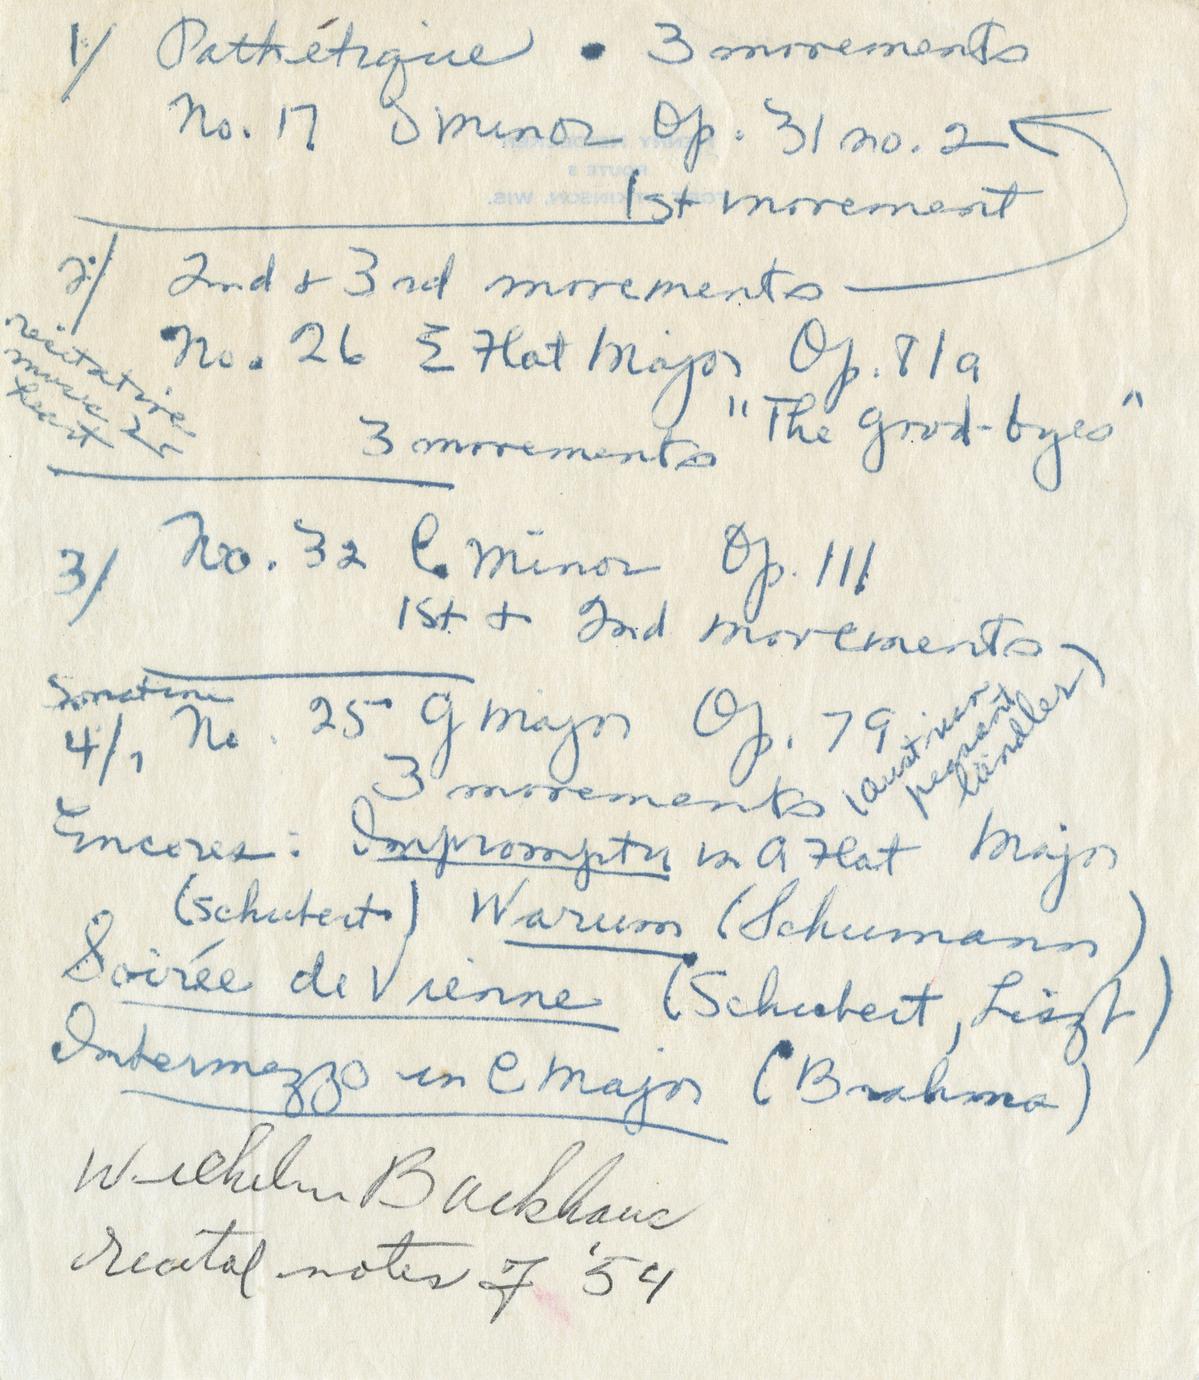 1/ Pathétique • 3 movements
No. 17 D minor Op. 31 no. 2
1st movement
2/ 2nd + 3rd movements
No. 26 E Flat Major Op. 81a
recitative
music
heart
3 movements "The Good-byes"
3/ No. 32 C Minor Op. 111
1st + 2nd movements
Sonatine
4/ No. 25 G Major Op. 79
3 movements (Austrian
peasant
ländler)
Encores: Impromptu in A Flat Major
(Schubert) Warum (Schumann)
Soirée de Vienne (Schubert, Liszt)
Intermezzo in C Major (Brahms)
Wilhelm Backhaus
recital notes '54